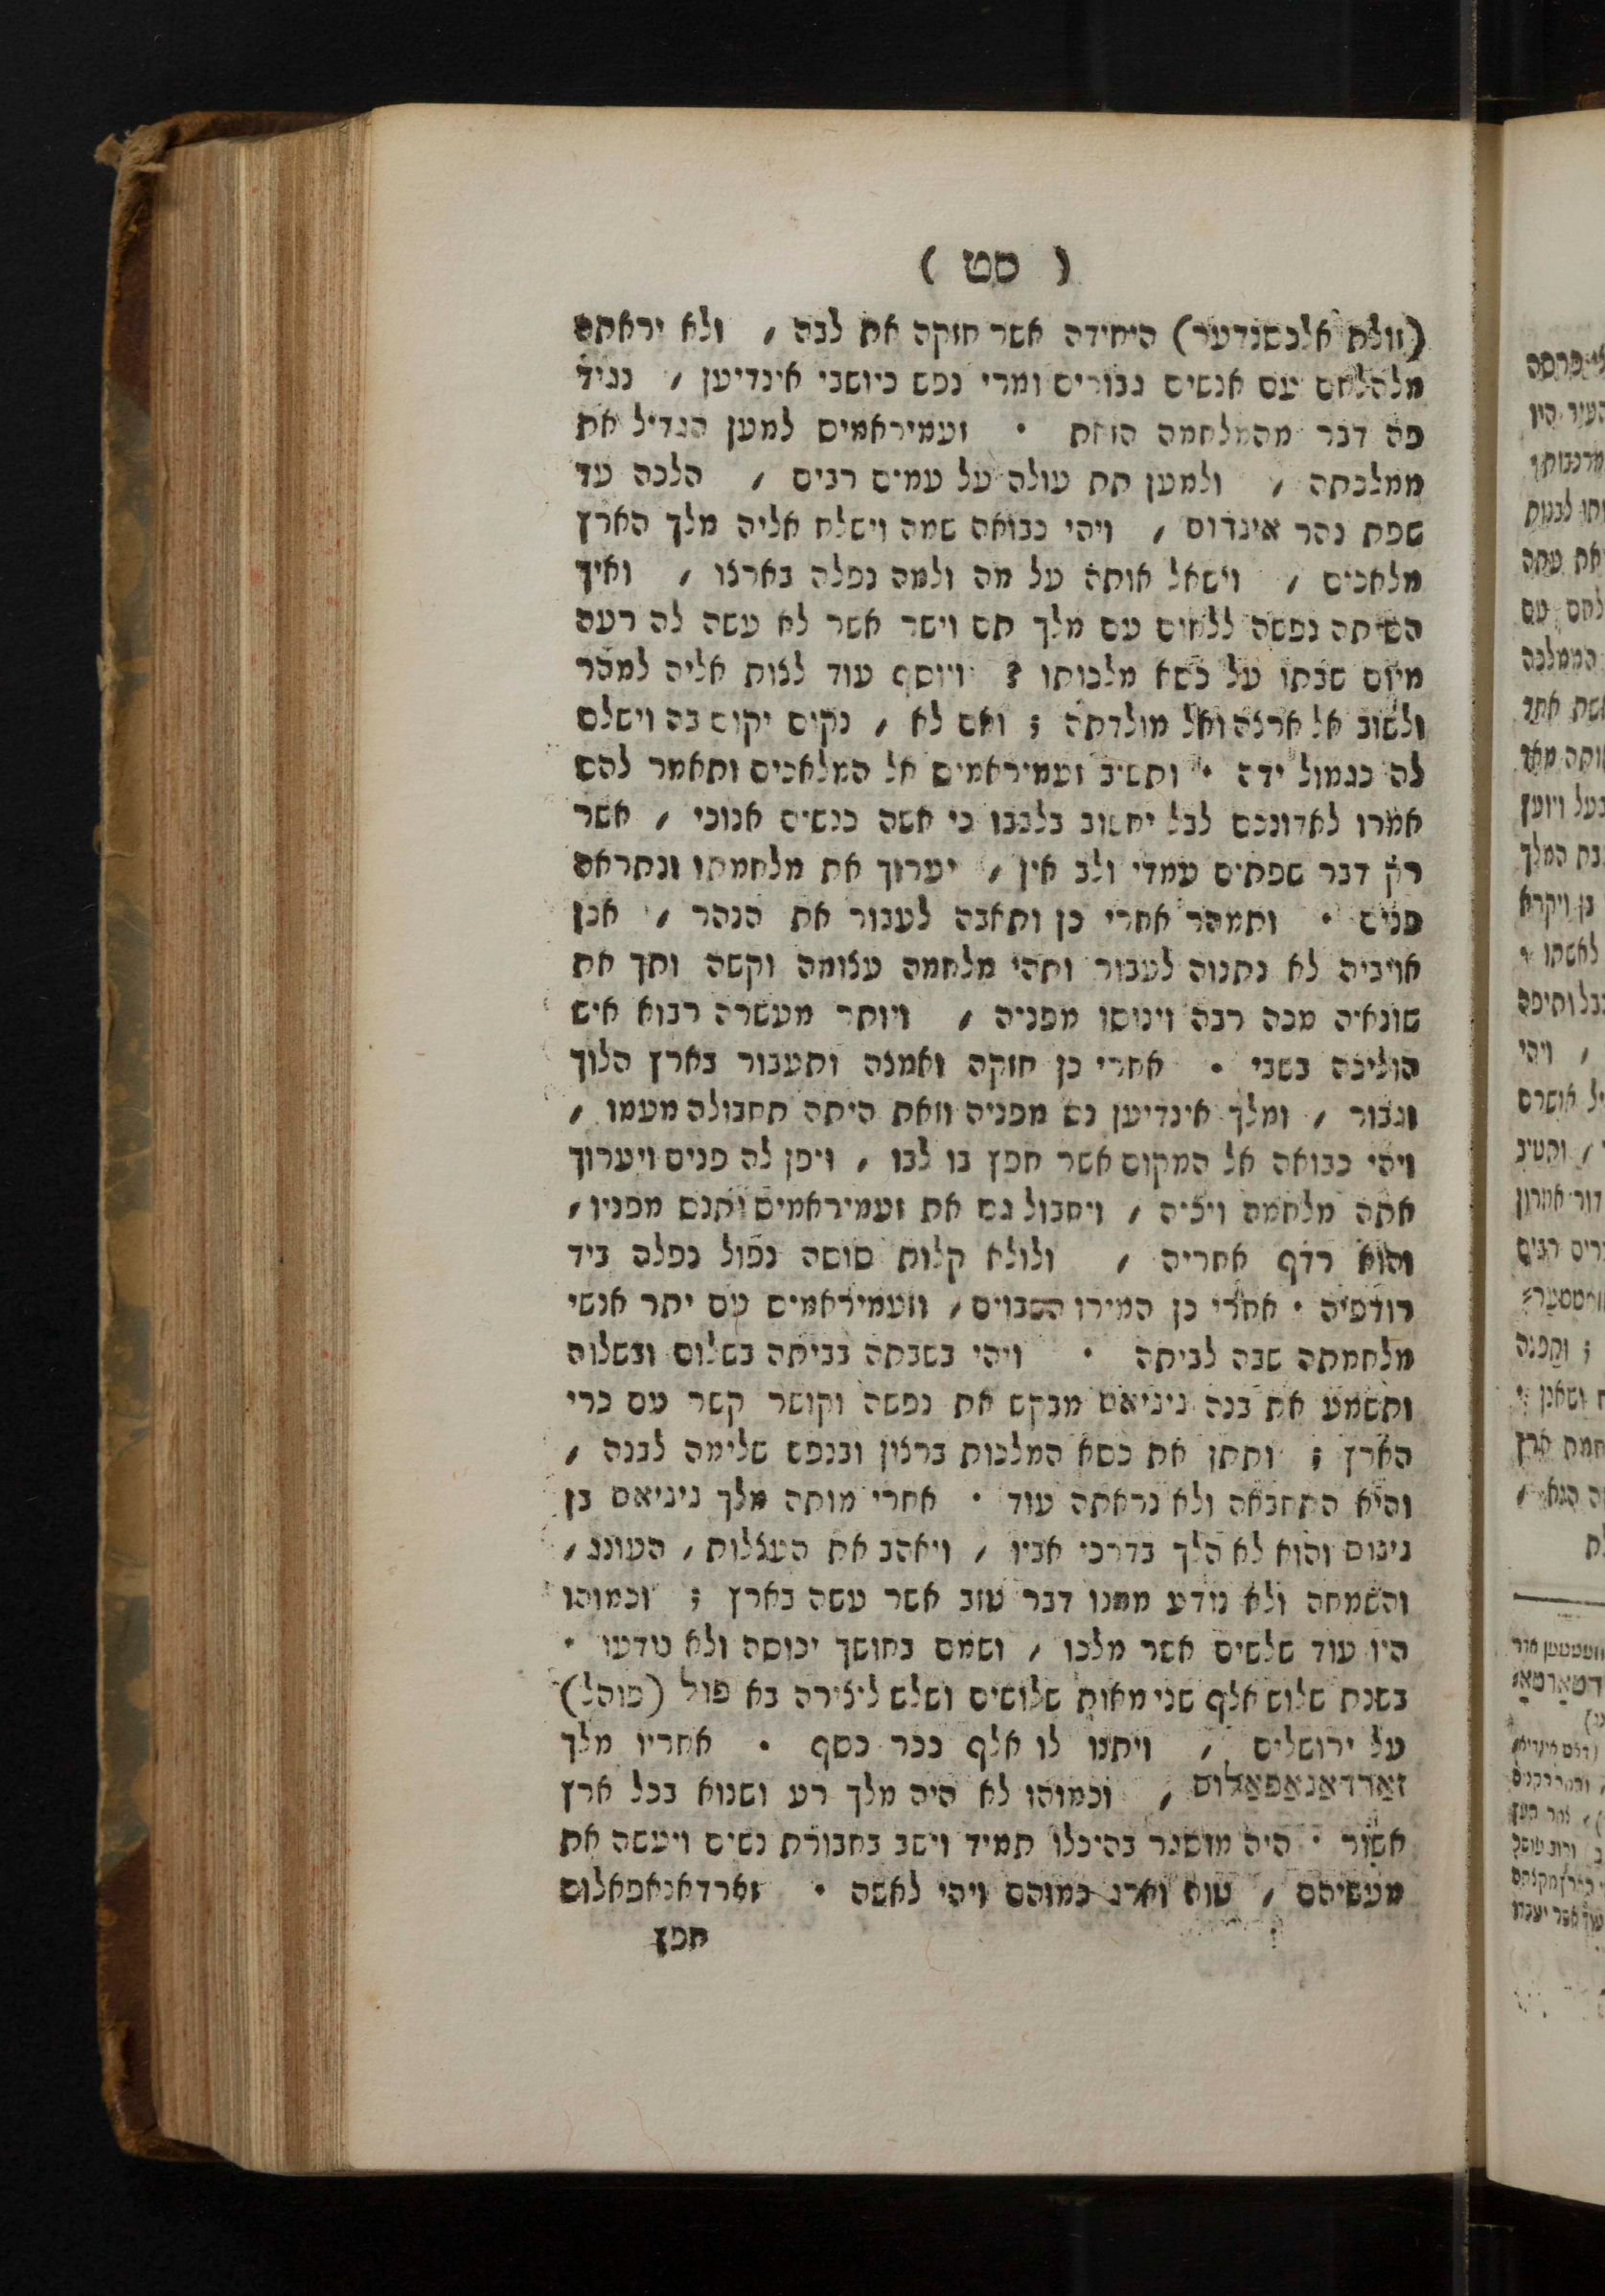 ( סט )
(זולת אלכסנדער) היחידה אשר חזקה את לבה , ולא יראתה
מלהלחם עם אנשים גבורים ומרי נפש כיושבי אינדיען , נגיד
פה דבר מהמלחמה הזאת · זעמיראמים למען הגדיל את
ממלכתה , ולמען תת עולה על עמים רבים , הלכה עד
שפת נהר אינדוס , ויהי כבואה שמה וישלח אליה מלך הארץ
מלאכים , וישאל אותה על מה ולמה נפלה בארצו , ואיך
השיתה נפשה ללחום עם מלך תם וישר אשר לא עשה לה רעה
מיום שבתו על כסא מלכותו ? ויוסף עוד לצות אליה למהר
ולשוב אל ארצה ואל מולדתה ; ואם לא , נקום יקום בה וישלם
לה כגמול ידה · ותשיב זעמיראמים אל המלאכים ותאמר להם
אמרו לאדונכם לבל יחשוב בלבבו כי אשה כנשים אנוכי , אשר
רק דבר שפתים עמדי ולב אין , יערוך את מלחמתו ונתראה
פנים · ותמהר אחרי כן ותאבה לעבור את הנהר , אכן
אויביה לא נתנוה לעבור ותהי מלחמה עצומה וקשה ותך את
שונאיה מכה רבה וינוסו מפניה , ויותר מעשרה רבוא איש
הוליכה בשבי · אחרי כן חזקה ואמצה ותעבור בארץ הלוך
וגבור , ומלך אינדיען נס מפניה וזאת היתה תחבולה מעמו ,
ויהי כבואה אל המקום אשר חפץ בו לבו , ויפן לה פנים ויערוך
אתה מלחמה ויכיה , ויחבול גם את זעמיראמים ותנס מפניו ,
והוא רדף אחריה , ולולא קלות סוסה נפול נפלה ביד
רודפיה · אחרי כן המירו השבוים , וזעמיראמים עם יתר אנשי
מלחמתה שבה לביתה · ויהי בשבתה בביתה בשלום ובשלוה
ותשמע את בנה ניניאס מבקש את נפשה וקושר קשר עם כרי
הארץ ; ותתן את כסא המלכות ברצון ובנפש שלימה לבנה ,
והיא התחבאה ולא נראתה עוד · אחרי מותה מלך ניניאס בן
נינוס והוא לא הלך בדרכי אביו , ויאהב את העצלות , העונג ,
והשמחה ולא נודע ממנו דבר טוב אשר עשה בארץ ; וכמוהו
היו עוד שלשים אשר מלכו , ושמם בחושך יכוסה ולא נודעו ·
בשנת שלוש אלף שני מאות שלושים ושלש ליצירה בא פול (פוהל)
על ירושלים , ויתנו לו אלף ככר כסף · אחריו מלך
זאַרדאַנאַפאַלוס , וכמוהו לא היה מלך רע ושנוא בכל ארץ
אשור · היה מוסגר בהיכלו תמיד וישב בחבורת נשים ויעשה את
מעשיהם , טוה וארג כמוהם ויהי לאשה · זארדאנאפאלוס
חפץ